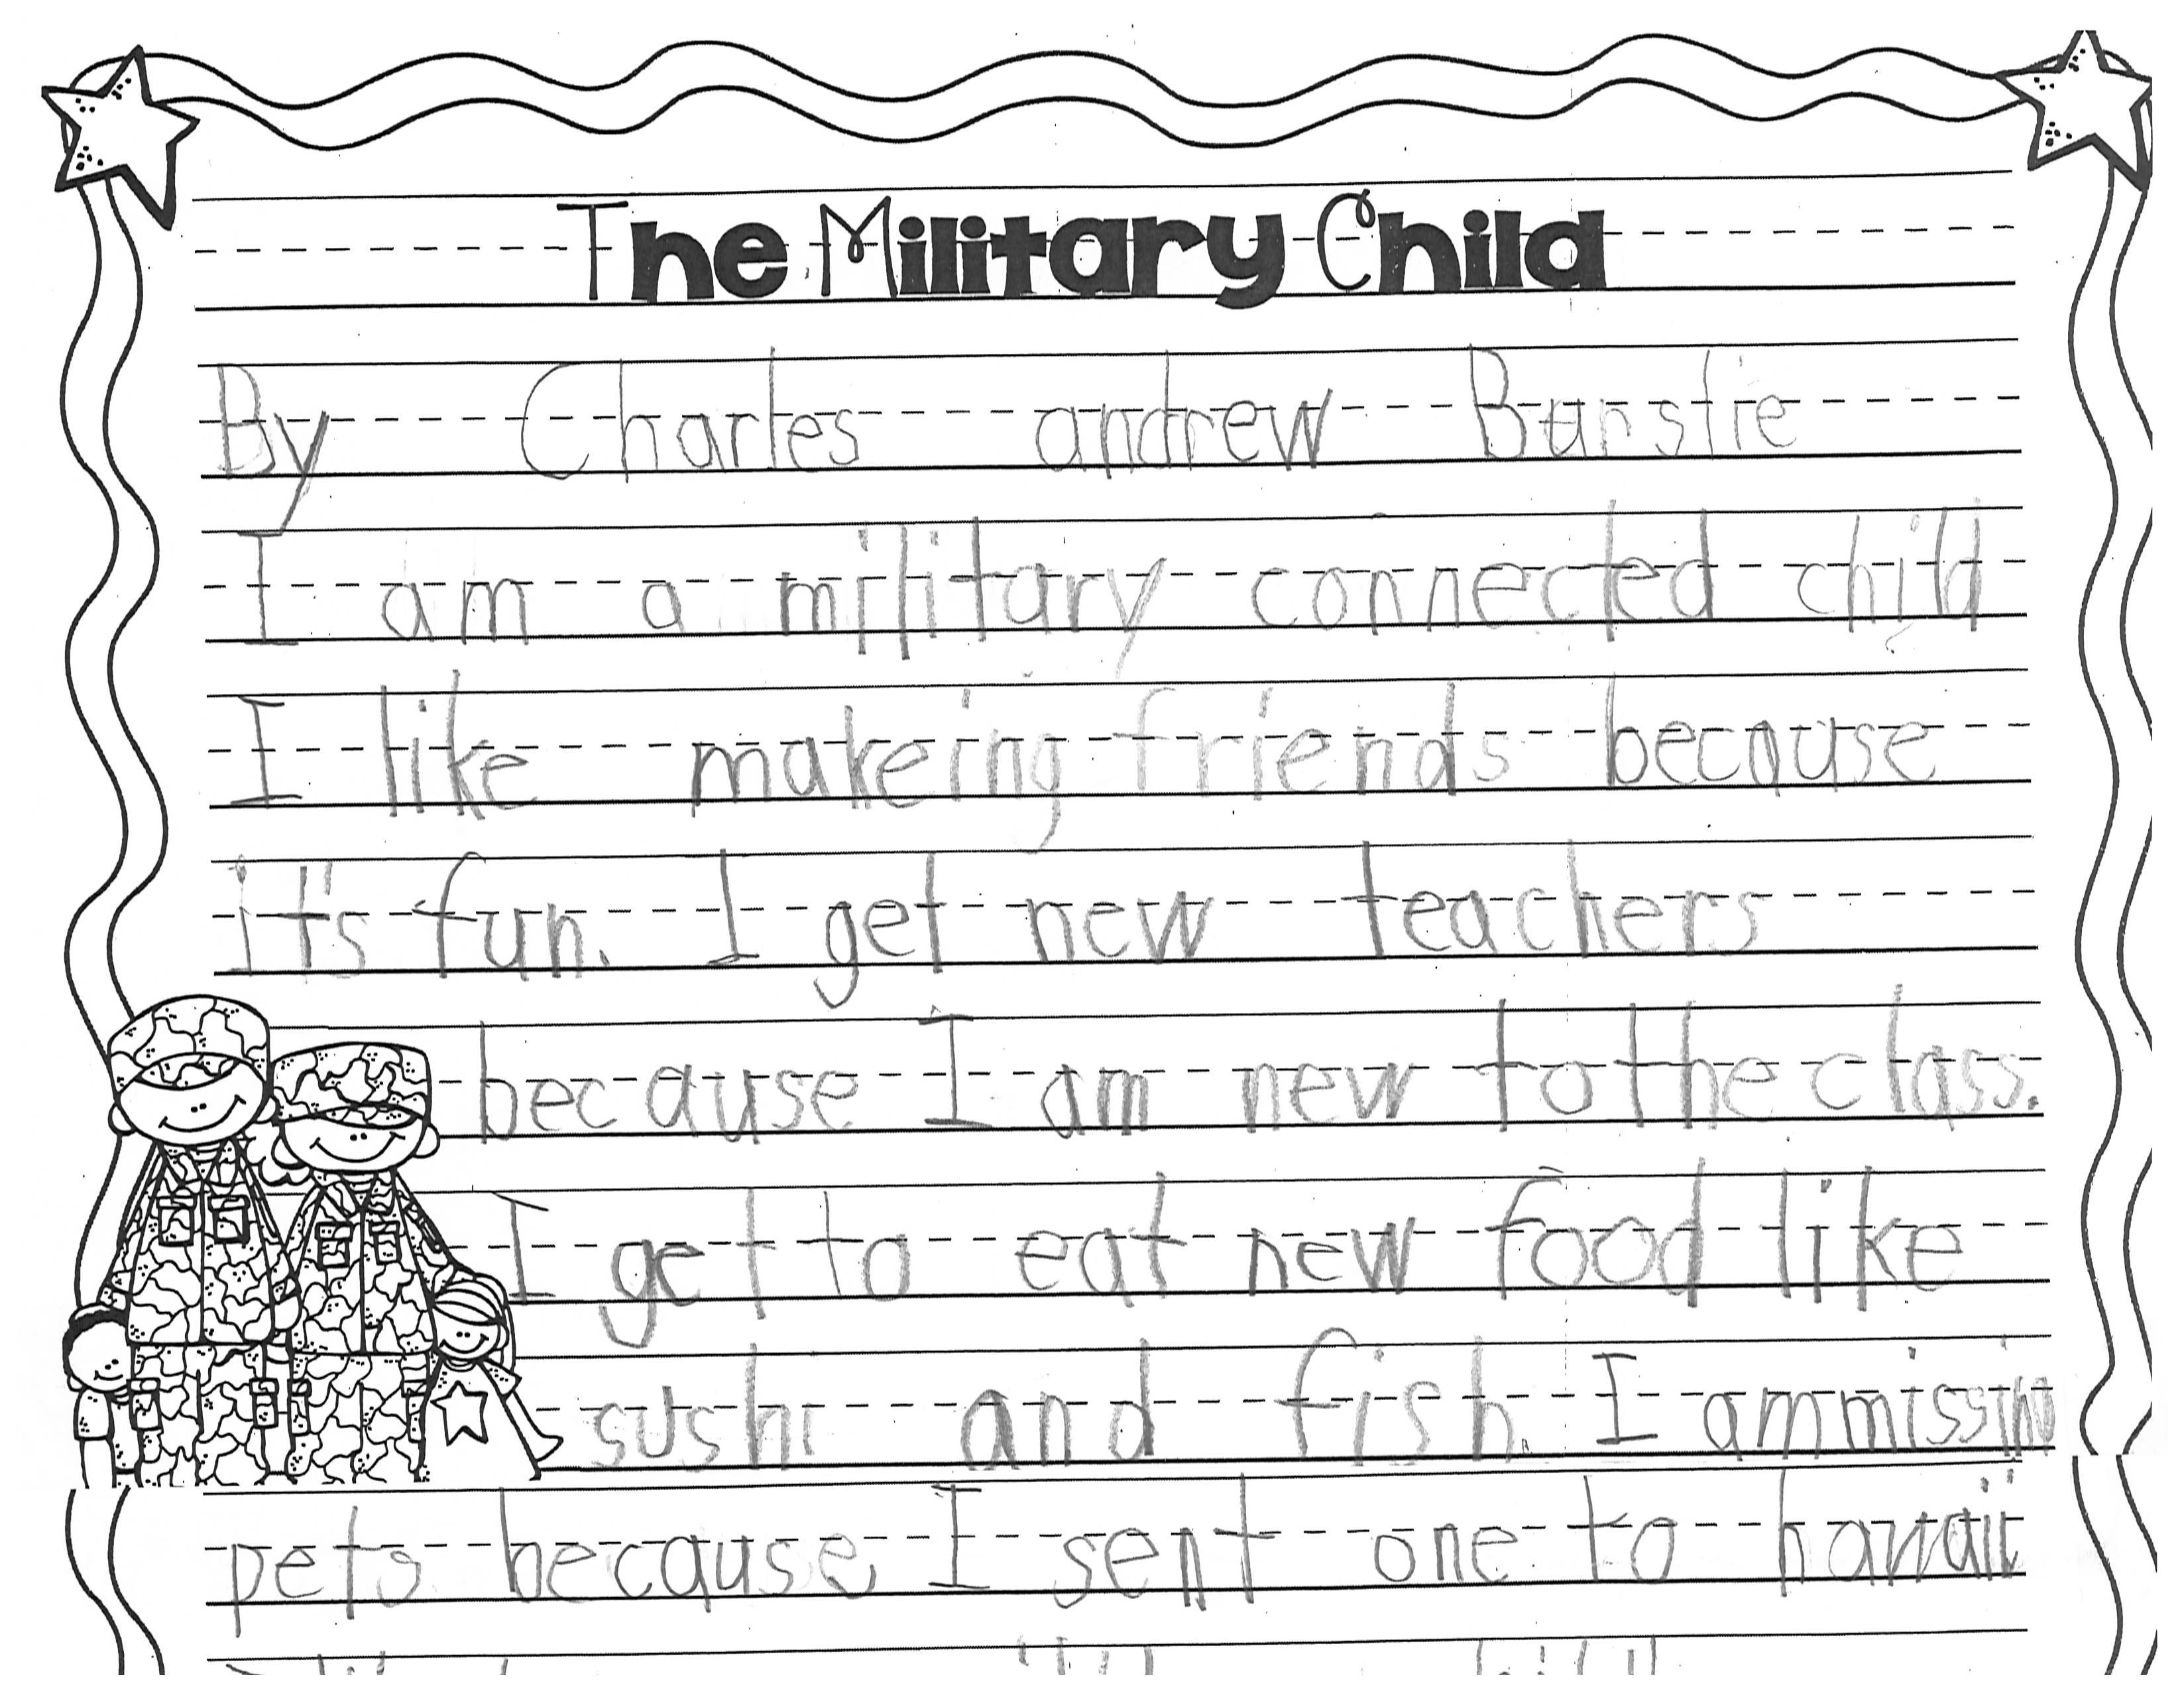 The Military Child
By Charles andrew Burstie
I am a military connected child
I like makeing friends because
it's fun. I get new teachers
because I am new to the class.
I get to eat new food like
sushi and fish. I am missing
pets because I sent one to hawaii